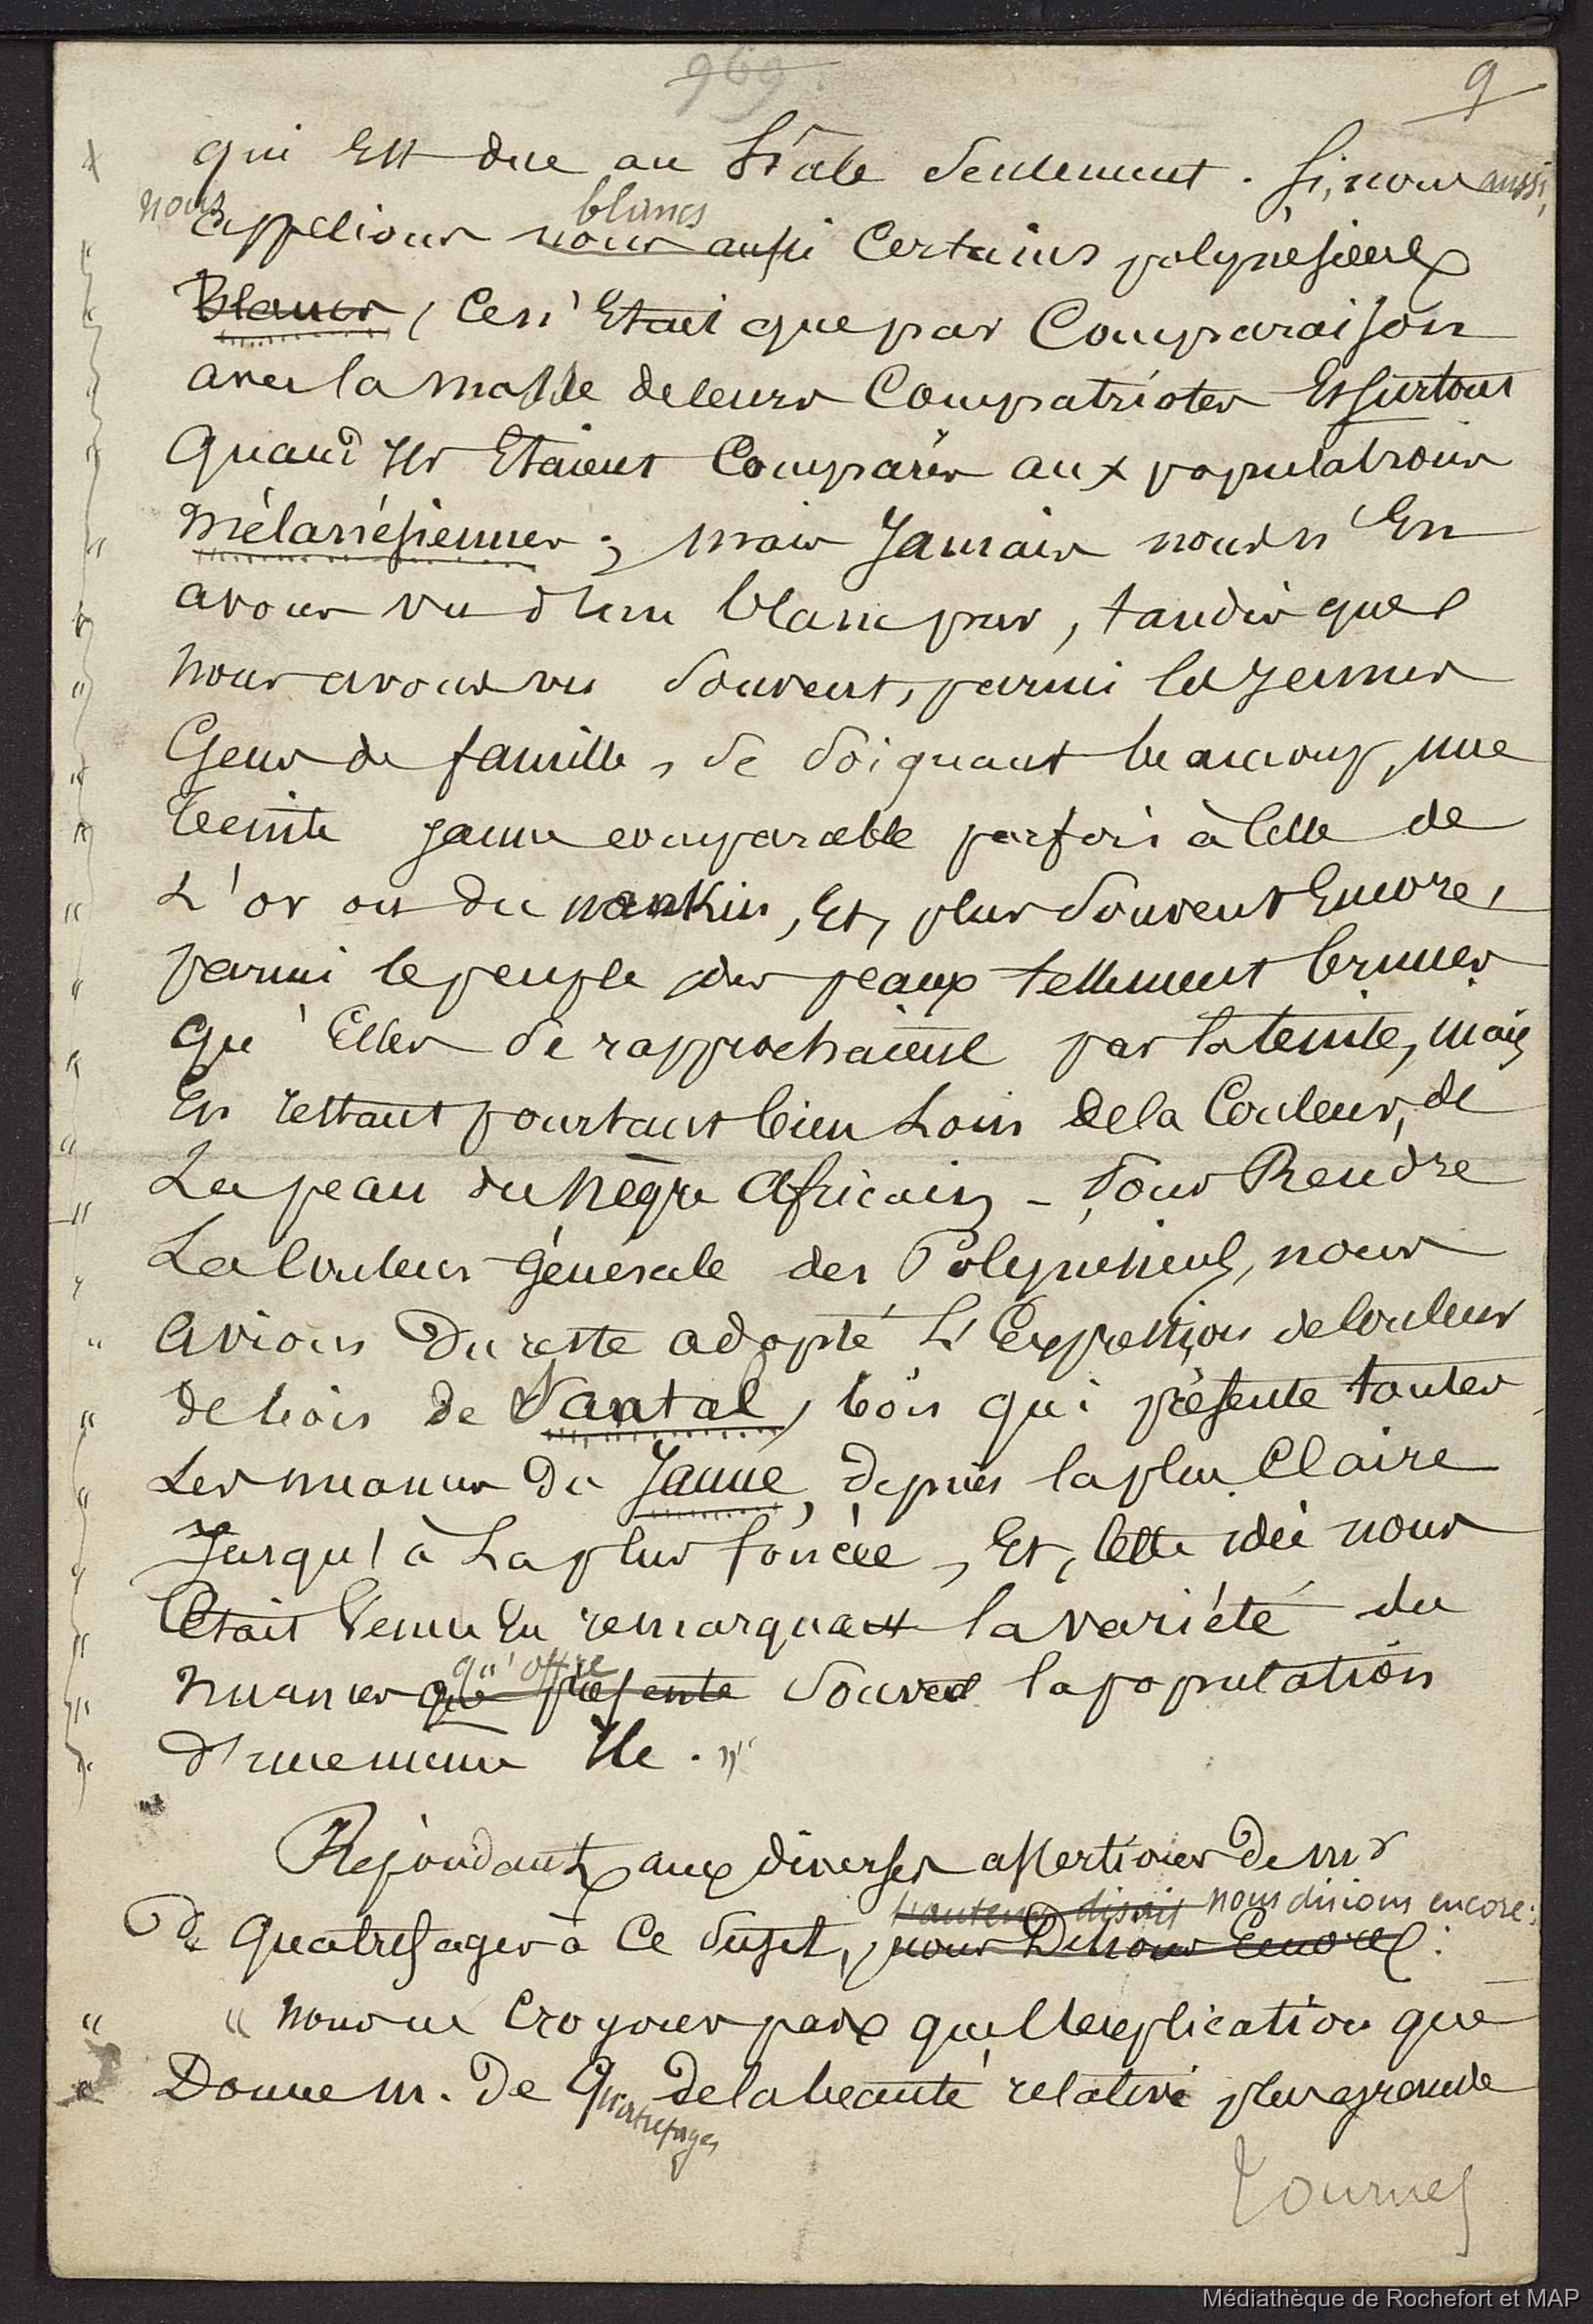 969.
9
qui Est due au hâle Seulement. Si, nous aussi,
nous blancs
appelions nous aussi Certains polynésiens
Blancs, Ce n'Etait que par Comparaison
avec la masse de leurs Compatriotes Et surtout
Quand Ils Etaient Comparés aux populations
Mélanésiennes ; mais Jamais nous n'En
avons vu d'un blanc pur, tandis que
nous avons vu Souvent, parmi les Jeunes
Gens de famille, Se Soignant beaucoup, une
teinte jaune comparable parfois à Celle de
L'or ou du nankin, Et, plus Souvent Encore,
parmi le peuple des peaux tellement brunes
qu'Elles Se rapprochaient par la teinte, mais
En restant pourtant bien Loin de la Couleur, de
La peau du Nègre Africain – Pour Rendre
La Couleur Générale des Polynésiens, nous
Avions Du reste adopté L'Expression de Couleur
de bois de Santal, bois qui présente toutes
Les nuances du Jaune, depuis la plus Claire
Jusqu'à La plus foncée, Et, Cette idée nous
Etait Venue En remarquant la variété du
qu'offre
nuances que présente Souvent la population
d'une même Ile. »
Répondant aux diverses assertions De Mr
l'auteur disait nous disions encore :
De Quatrefages à Ce Sujet, nous Disions Encore :
" « Nous ne Croyons pas que l'explication que
" Donne M. De Quatrefages De la beauté relative plus grande
Tournez
Médiathèque de Rochefort et MAP